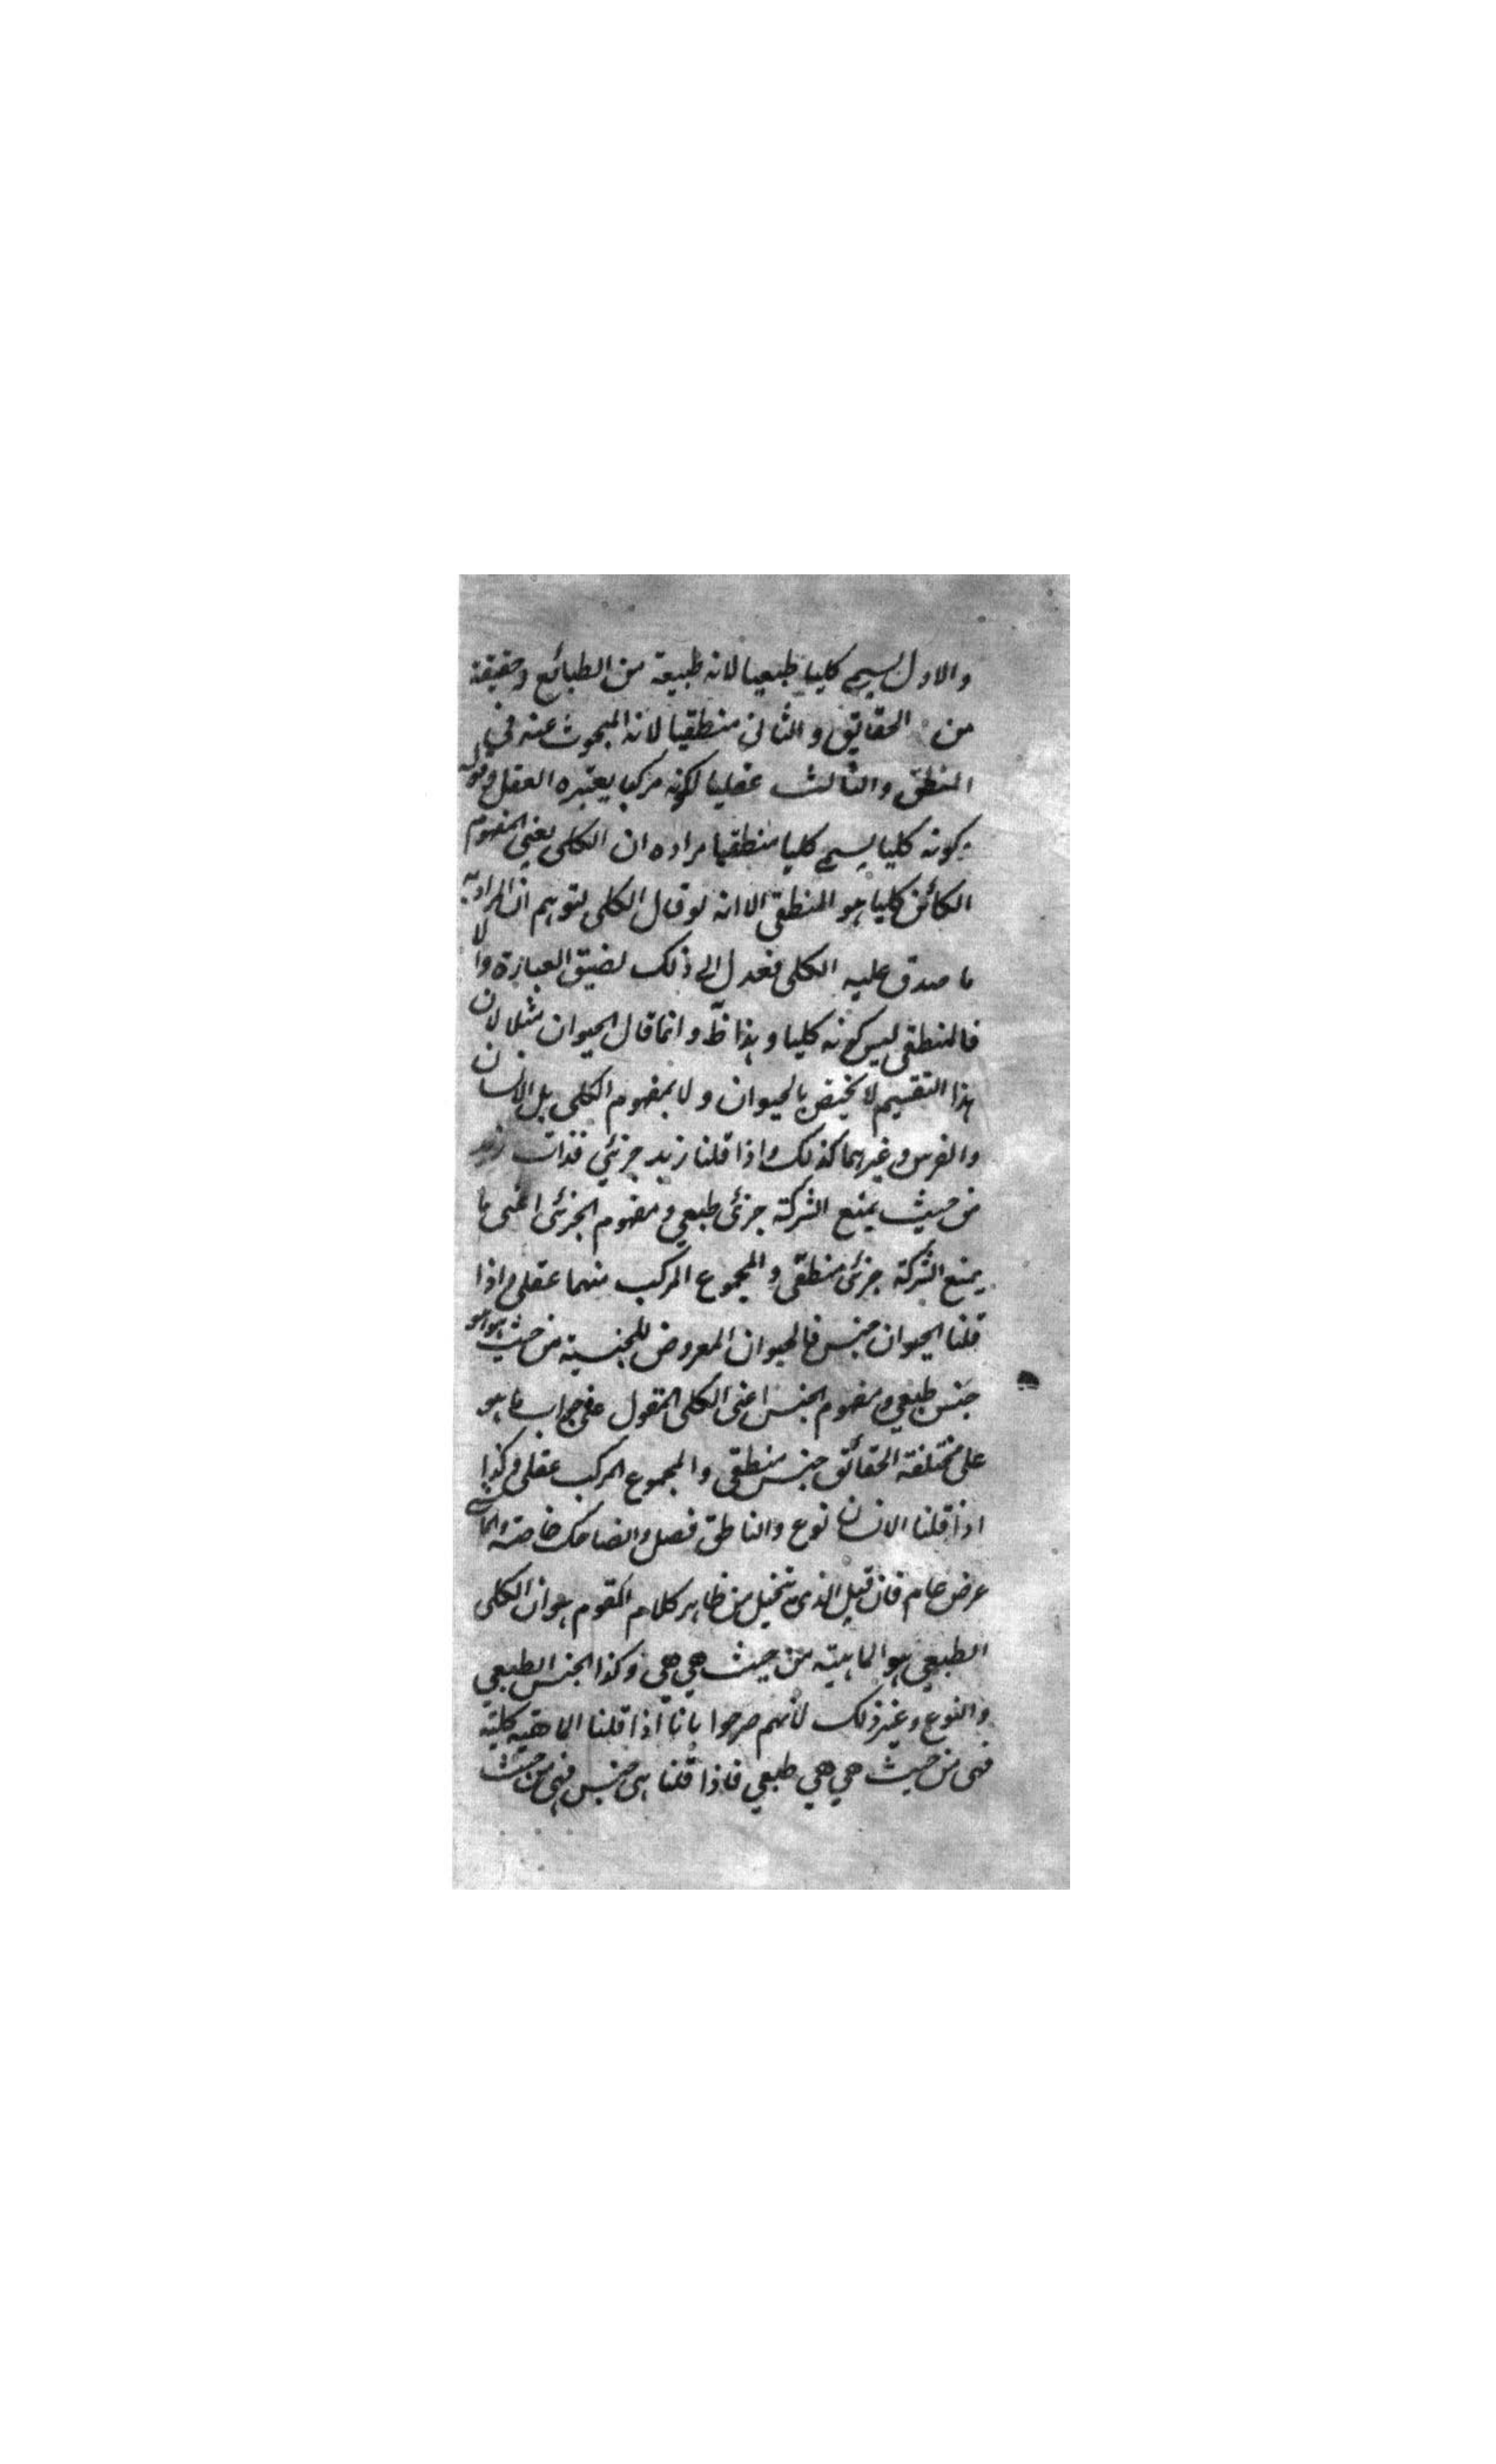 والاول يسمى كليا طبعيا لانه طبيعة من الطبائع وحقيقة
من الحقايق والثانى منطقيا لانه المبحوث عنه فى
المنطق والثالث عقليا لكونه مركبا يعتبره العقل وقوله
بكونه كليا يسمى كليا منطقيا مراده ان الكلى يعنى المفهوم
الكائن كليا هو المنطقى الا انه لو قال الكلى لتوهم ان المراد به
ما صدق عليه الكلى فعدل الى ذلك لضيق العبارة والا
فالمنطقى ليس كونه كليا وهذا ظ وانما قال الحيوان مثلا لان
هذا التقسيم لا يختص بالحيوان ولا بمفهوم الكلى بل الانسان
والفرس وغيرهما كذلك واذا قلنا زيد جزئي فذات زيد
من حيث يمنع الشركة جزئى طبعي ومفهوم الجزئى اعنى ما
يمنع الشركة جزئى منطقى والمجموع المركب منهما عقلى واذا
قلنا الحيوان جنس فالحيوان المعروض للجنسية من حيث هو هو
جنس طبعي ومفهوم الجنس اعنى الكلى المقول فى جواب ما هو
على مختلفة الحقائق جنس منطقى والمجموع المركب عقلى وكذا
اذا قلنا الانسان نوع والناطق فصل والضاحك خاصة والماشى
عرض عام فان قيل الذى يتخيل من ظاهر كلام القوم هو ان الكلى
الطبعي هو الماهية من حيث هي هي وكذا الجنس الطبعي
والنوع وغير ذلك لأنهم صرحوا بانا اذا قلنا الماهية كلية
فهى من حيث هي هي طبعي فاذا قلنا هى جنس فهى من حيث